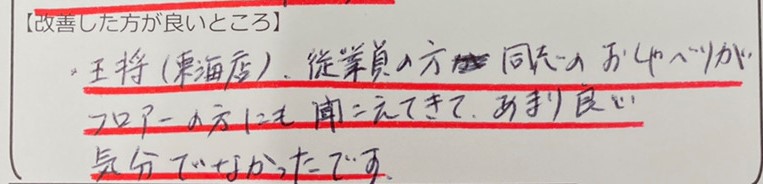 【改善した方が良いところ】
・王将(東海店)、従業員の方同志のおしゃべりが
フロアーの方にも聞こえてきて、あまり良い
気分でなかったです。